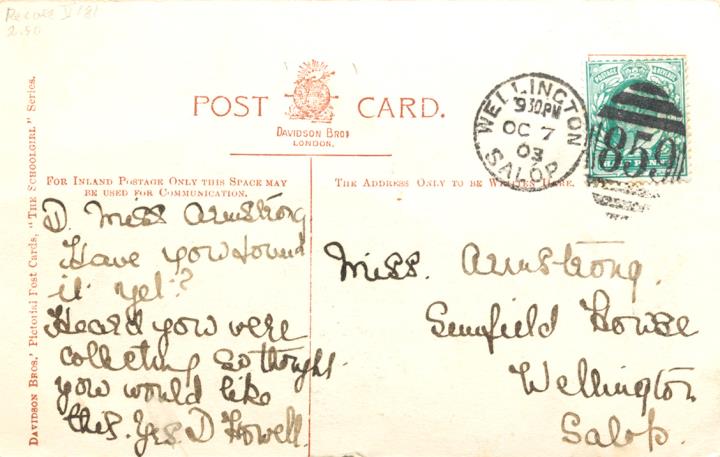 POST CARD.
DAVIDSON BROS
LONDON.
WELLINGTON
930PM
OC 7
03
SALOP
POSTAGE & REVENUE
859
DAVIDSON BROS.' PICTORIAL POST CARDS, "THE SCHOOLGIRL" SERIES.
FOR INLAND POSTAGE ONLY THIS SPACE MAY
BE USED FOR COMMUNICATION.
D. Miss Armstrong
Have you found
it yet?
Heard you were
collecting so thought
you would like
this. Yrs. D Howell.
THE ADDRESS ONLY TO BE WRITTEN HERE.
Miss. Armstrong.
House
Wellington
Salop.